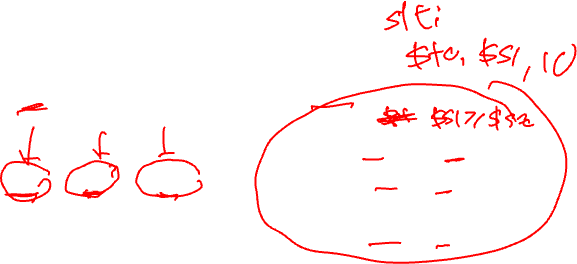 slti
$t0, $s1, 10
$s1 > $s2